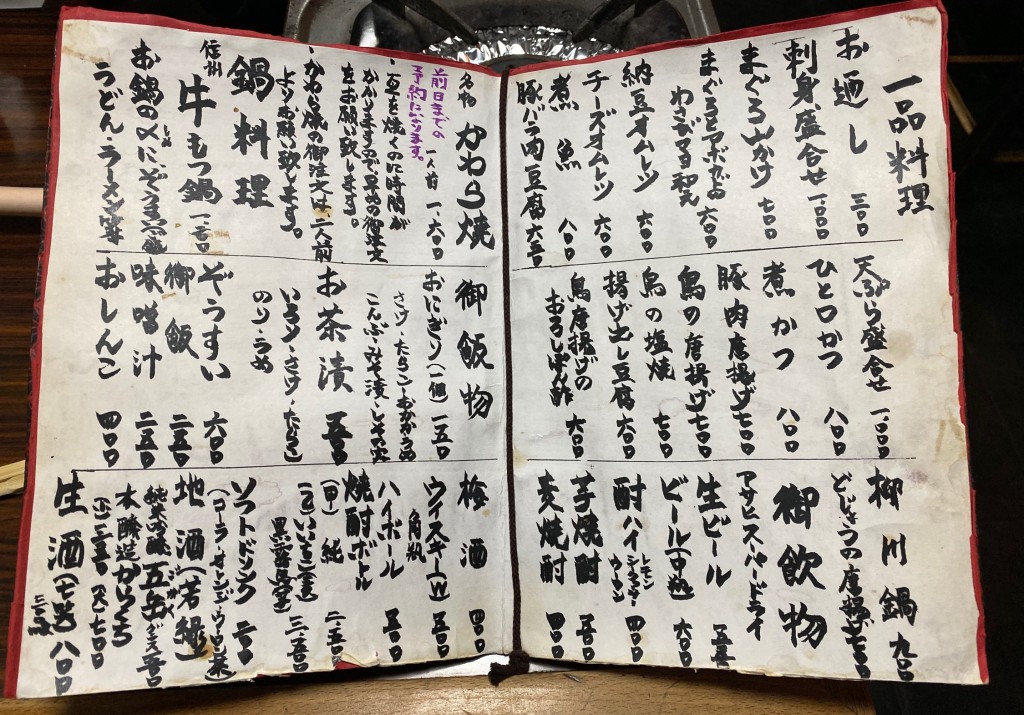 一品料理
お通し 三〇〇
刺身盛合せ 一、〇〇〇
まぐろ山かけ 七〇〇
まぐろとアボカドの
わさびマヨ和え 六〇〇
納豆オムレツ 六〇〇
チーズオムレツ 六〇〇
煮魚 八〇〇
豚バラ肉豆腐 六五〇
天ぷら盛合せ 一、〇〇〇
ひと口かつ 八〇〇
煮かつ 八〇〇
豚肉唐揚げ 七〇〇
鳥の唐揚げ 七〇〇
鳥の塩焼 七〇〇
揚げ出し豆腐 六〇〇
鳥唐揚げの
おろしぽん酢 六〇〇
柳川鍋 九〇〇
どじょうの唐揚げ 七〇〇
御飲物
アサヒスーパードライ
生ビール 五五〇
ビール(中瓶) 六〇〇
酎ハイ レモン 四〇〇
ウーロン
芋焼酎 五〇〇
麦焼酎 五〇〇
名物 かわら焼
一人前 一、六〇〇
前日までの
予約になります。
・瓦を焼くのに時間が
かかりますので、早めの御注文
をお願い致します。
・かわら焼の御注文は二人前
よりお願い致します。
鍋料理
信州
牛もつ鍋 一、二〇〇
お鍋の〆にぞうすい
うどん、ラーメン等
御飯物
おにぎり(一個) 二五〇
さけ・たらこ・おかか
こんぶ・みそ漬・しそ
お茶漬 五〇〇
いくら・さけ・たらこ
のり・うめ
ぞうすい 六〇〇
御飯 二五〇
味噌汁 二五〇
おしんこ 四〇〇
梅酒 四〇〇
ウイスキー(W) 五〇〇
角瓶
ハイボール 五〇〇
焼酎ボトル
(甲) 純 二、五〇〇
(乙) いいちこ(麦)
黒霧島(芋) 三、五〇〇
ソフトドリンク 二〇〇
(コーラ・オレンジ・ウーロン茶)
地酒(若緑)
本醸造からくち
(小)三五〇 (大)七〇〇
生酒 八〇〇